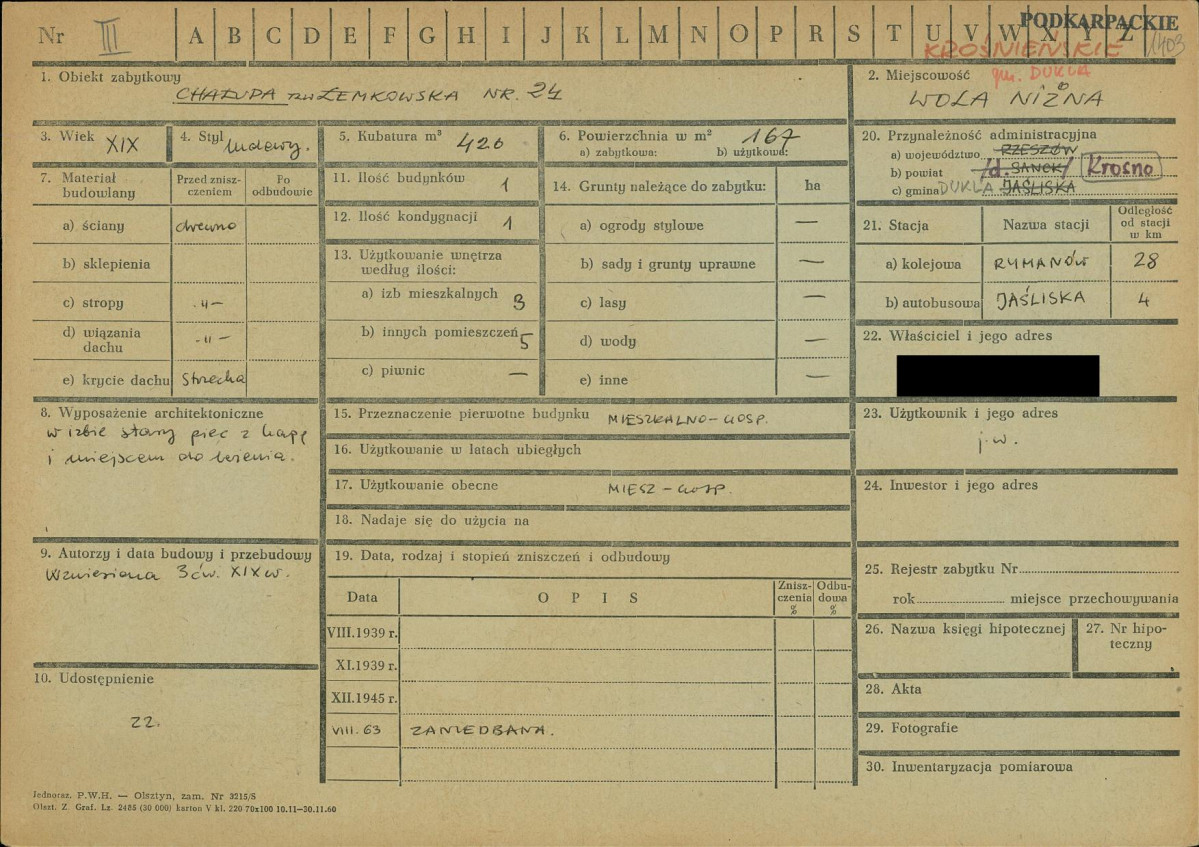 Nr III A B C D E F G H I J K L M N O P R S T U V W X Y Z
PODKARPACKIE
KROŚNIEŃSKIE 1403
gm. DUKLA
1. Obiekt zabytkowy
CHAŁUPA tzw ŁEMKOWSKA NR. 24
2. Miejscowość
WOLA NIŻNA
3. Wiek XIX
4. Styl ludowy.
5. Kubatura m³ 420
6. Powierzchnia w m² 167
a) zabytkowa: b) użytkowa:
7. Materiał budowlany
Przed znisz-
czeniem
Po
odbudowie
a) ściany drewno
b) sklepienia
c) stropy -"-
d) wiązania
dachu -"-
e) krycie dachu Strzecha
8. Wyposażenie architektoniczne
w izbie stary piec z kapą
i miejscem do leżenia.
9. Autorzy i data budowy i przebudowy
Wzniesiona 3 ćw. XIX w.
10. Udostępnienie
22.
11. Ilość budynków 1
12. Ilość kondygnacji 1
13. Użytkowanie wnętrza
według ilości:
a) izb mieszkalnych 3
b) innych pomieszczeń 5
c) piwnic —
14. Grunty należące do zabytku: ha
a) ogrody stylowe —
b) sady i grunty uprawne —
c) lasy —
d) wody —
e) inne —
15. Przeznaczenie pierwotne budynku MIESZKALNO-GOSP.
16. Użytkowanie w latach ubiegłych
17. Użytkowanie obecne MIESZ-GOSP.
18. Nadaje się do użycia na
19. Data, rodzaj i stopień zniszczeń i odbudowy
Data OPIS
Znisz-
czenia
%
Odbu-
dowa
%
VIII.1939 r.
XI.1939 r.
XII.1945 r.
VIII.63 ZANIEDBANA.
20. Przynależność administracyjna
a) województwo RZESZÓW
b) powiat /d. SANOK/ Krosno
c) gmina DUKLA JAŚLISKA
21. Stacja Nazwa stacji
Odległość
od stacji
w km
a) kolejowa RYMANÓW 28
b) autobusowa JAŚLISKA 4
22. Właściciel i jego adres
23. Użytkownik i jego adres
j.w.
24. Inwestor i jego adres
25. Rejestr zabytku Nr
rok miejsce przechowywania
26. Nazwa księgi hipotecznej
27. Nr hipo-
teczny
28. Akta
29. Fotografie
30. Inwentaryzacja pomiarowa
Jednoraz. P.W.H. — Olsztyn, zam. Nr 3215/S
Olszt. Z. Graf. Lz. 2485 (30 000) karton V kl. 220 70x100 10.11—30.11.60